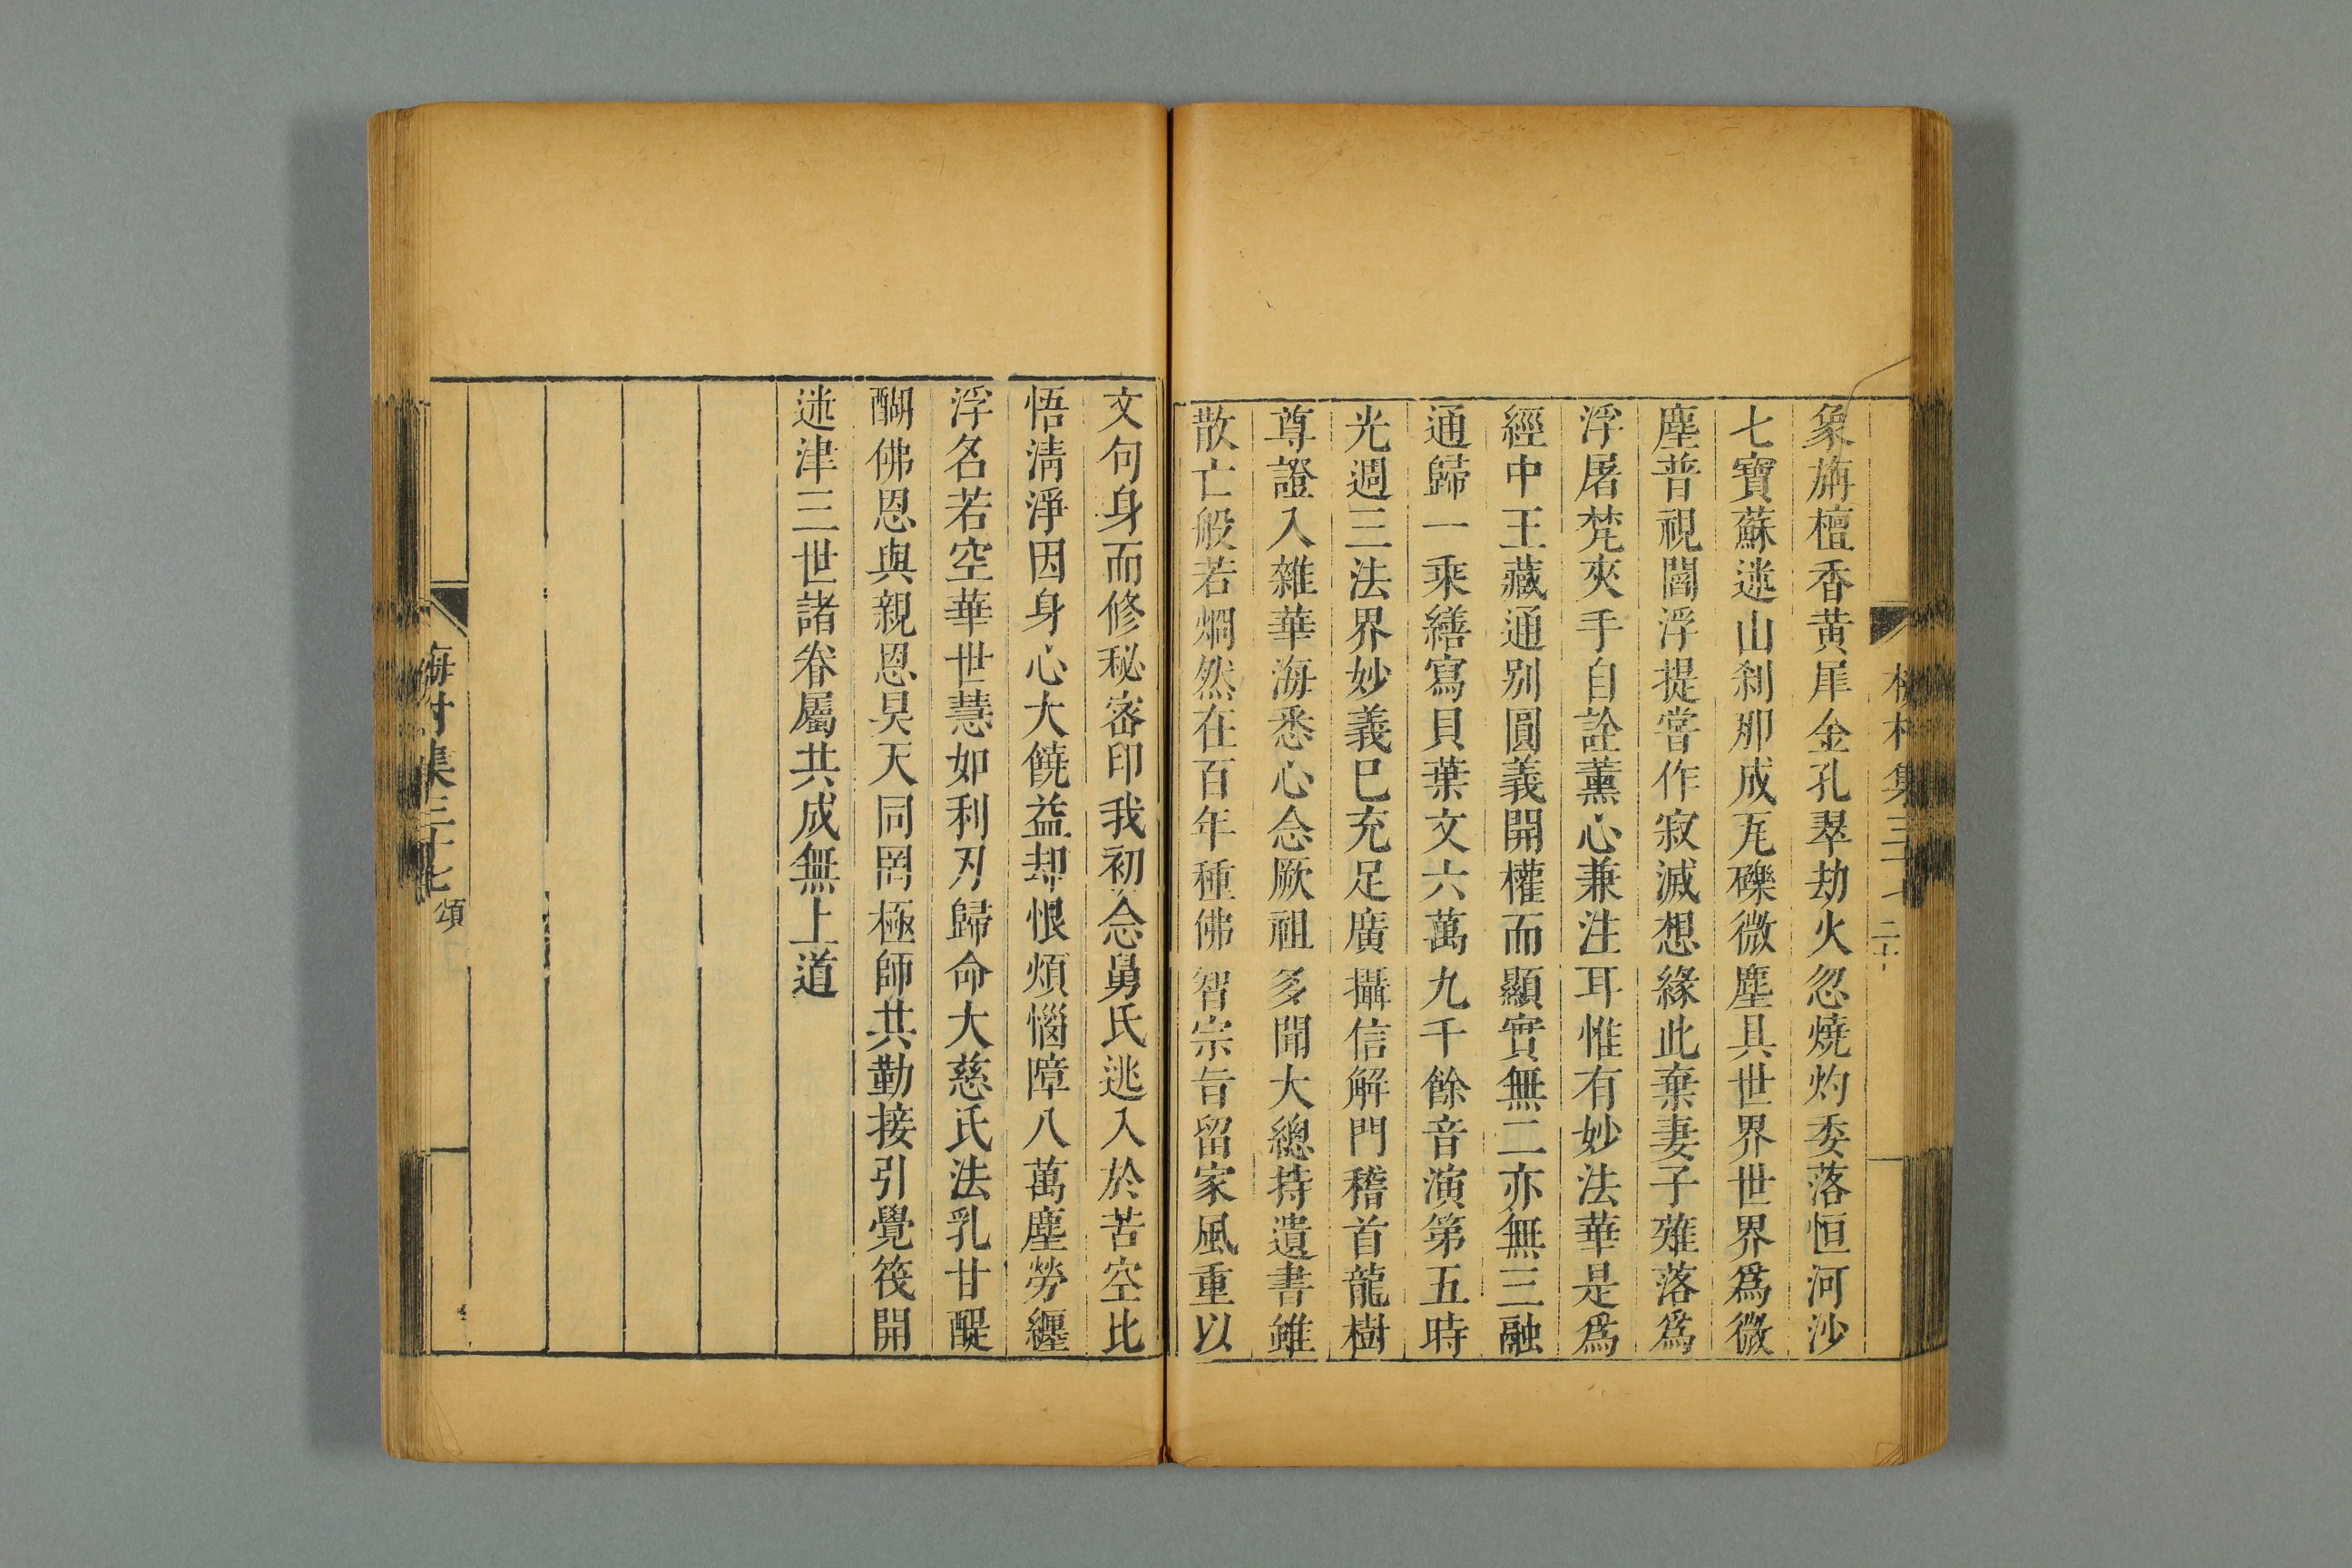 象旃檀香黃犀金孔翠劫火忽燒灼委落恒河沙
七寶蘇迷山刹那成瓦礫微塵具世界世界爲微
塵普視閻浮提嘗作寂滅想緣此棄妻子薙落爲
浮屠梵夾手自詮薰心兼注耳惟有妙法華是爲
經中王藏通别圓義開權而顯實無二亦無三融
通歸一乘繕寫貝葉文六萬九千餘音演第五時
光週三法界妙義已充足廣攝信解門稽首龍樹
尊證入雜華海悉心念厥祖多聞大總持遺書雖
散亡般若炯然在百年種佛智宗旨留家風重以
文句身而修秘密印我初入念舅氏逃入於苦空比
悟淸淨因身心大饒益却恨煩惱障八萬塵勞纒
浮名若空華世慧如利刃歸命大慈氏法乳甘醍
醐佛恩與親恩昊天同罔極師共勤接引覺筏開
迷津三世諸眷屬共成無上道
海村集三十七 頌